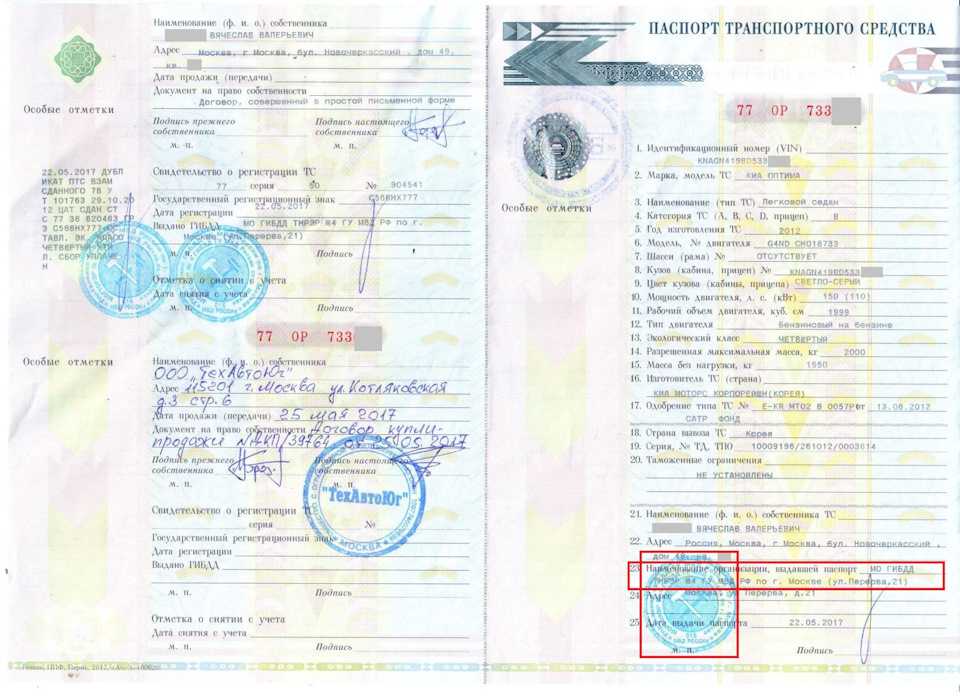 Наименование (ф. и. о.) собственника
ВЯЧЕСЛАВ ВАЛЕРЬЕВИЧ
Адрес Москва, г Москва, бул. Новочеркасский , дом 49,
кв.
Дата продажи (передачи)
Документ на право собственности
Договор, совершенный в простой письменной форме
Подпись прежнего собственника
Подпись настоящего собственника
м. п.
м. п.
Особые отметки
22.05.2017 ДУБЛ
ИКАТ ПТС ВЗАМ
СДАННОГО ТВ У
Т 101763 29.10.20
12 ЦАТ СДАН СТ
С 77 36 820463 ГР
З С568НХ777
ТАВЛ. ЭК.
ЧЕТВЕРТЫЙ
Л. СБОР УПЛАЧЕ
Н
Свидетельство о регистрации ТС
77 серия 50 № 904541
Государственный регистрационный знак С568НХ777
Дата регистрации 22.05.2017
Выдано ГИБДД МО ГИБДД ТНРЭР №4 ГУ МВД РФ по г.
Москве (ул.Перерва,21)
м. п.
Подпись
Отметка о снятии с учета
Дата снятия с учета
м. п.
Подпись
77 ОР 733
Особые отметки
Наименование (ф. и. о.) собственника
ООО "ТехАвтоЮг"
Адрес 115201 г. Москва ул. Котляковская
д.3 стр. 6
Дата продажи (передачи) 25 мая 2017
Документ на право собственности Договор купли-
продажи № АКП/39764 от 25.05.2017
Подпись прежнего собственника
Подпись настоящего собственника
м. п.
м. п.
"ТехАвтоЮг"
МОСКВА
Свидетельство о регистрации ТС
серия №
Государственный регистрационный знак
Дата регистрации
Выдано ГИБДД
м. п.
Подпись
Отметка о снятии с учета
Дата снятия с учета
м. п.
Подпись
ПАСПОРТ ТРАНСПОРТНОГО СРЕДСТВА
77 ОР 733
Особые отметки
1. Идентификационный номер (VIN)
KNAGN419BD533
2. Марка, модель ТС КИА ОПТИМА
3. Наименование (тип ТС) Легковой седан
4. Категория ТС (А, В, С, D, прицеп) B
5. Год изготовления ТС 2012
6. Модель, № двигателя G4ND CH016733
7. Шасси (рама) № ОТСУТСТВУЕТ
8. Кузов (кабина, прицеп) № KNAGN419BD533
9. Цвет кузова (кабины, прицепа) СВЕТЛО-СЕРЫЙ
10. Мощность двигателя, л. с. (кВт) 150 (110)
11. Рабочий объем двигателя, куб. см 1999
12. Тип двигателя Бензиновый на бензине
13. Экологический класс ЧЕТВЕРТЫЙ
14. Разрешенная максимальная масса, кг 2000
15. Масса без нагрузки, кг 1550
16. Изготовитель ТС (страна)
КИА МОТОРС КОРПОРЕЙШН(КОРЕЯ)
17. Одобрение типа ТС № E-KR МТ02 В 0057Р от 13.06.2012
САТР ФОНД
18. Страна вывоза ТС Корея
19. Серия, № ТД, ТПО 10009196/261012/0003614
20. Таможенные ограничения
НЕ УСТАНОВЛЕНЫ
21. Наименование (ф. и. о.) собственника ТС
ВЯЧЕСЛАВ ВАЛЕРЬЕВИЧ
22. Адрес Россия, Москва, г Москва, бул. Новочеркасский ,
дом 49, кв.
23. Наименование организации, выдавшей паспорт МО ГИБДД
ТНРЭР №4 ГУ МВД РФ по г. Москве (ул.Перерва,21)
24. Адрес Москва, Перерва, д.21
25. Дата выдачи паспорта 22.05.2017
м. п.
Подпись